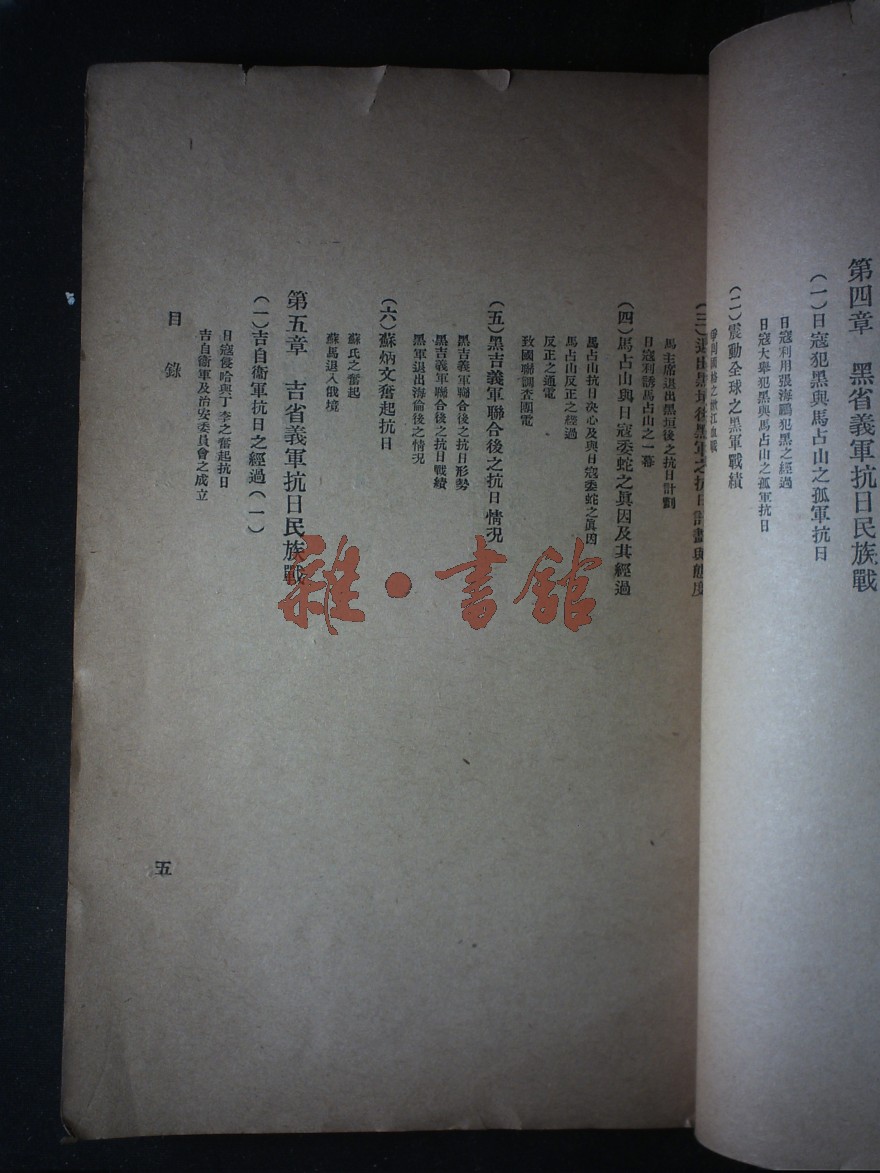 第四章　黑省義軍抗日民族戰
（一）日寇犯黑與馬占山之孤軍抗日
日寇利用張海鵬犯黑之經過
日寇大舉犯黑與馬占山之孤軍抗日
（二）震動全球之黑軍戰績
江血戰
（三）退出黑垣後黑軍之抗日計畫與態度
馬主席退出黑垣後之抗日計劃
日寇利誘馬占山之一幕
（四）馬占山與日寇委蛇之眞因及其經過
馬占山抗日决心及與日寇委蛇之眞因
馬占山反正之經過
反正之通電
致國聯調查團電
（五）黑吉義軍聯合後之抗日情況
黑吉義軍聯合後之抗日形勢
黑吉義軍聯合後之抗日戰績
黑軍退出海倫後之情况
（六）蘇炳文奮起抗日
蘇氏之奮起
蘇馬退入俄境
第五章　吉省義軍抗日民族戰
（一）吉自衞軍抗日之經過（一）
日寇侵哈與丁李之奮起抗日
吉自衞軍及治安委員會之成立
目錄
五
雜·書館